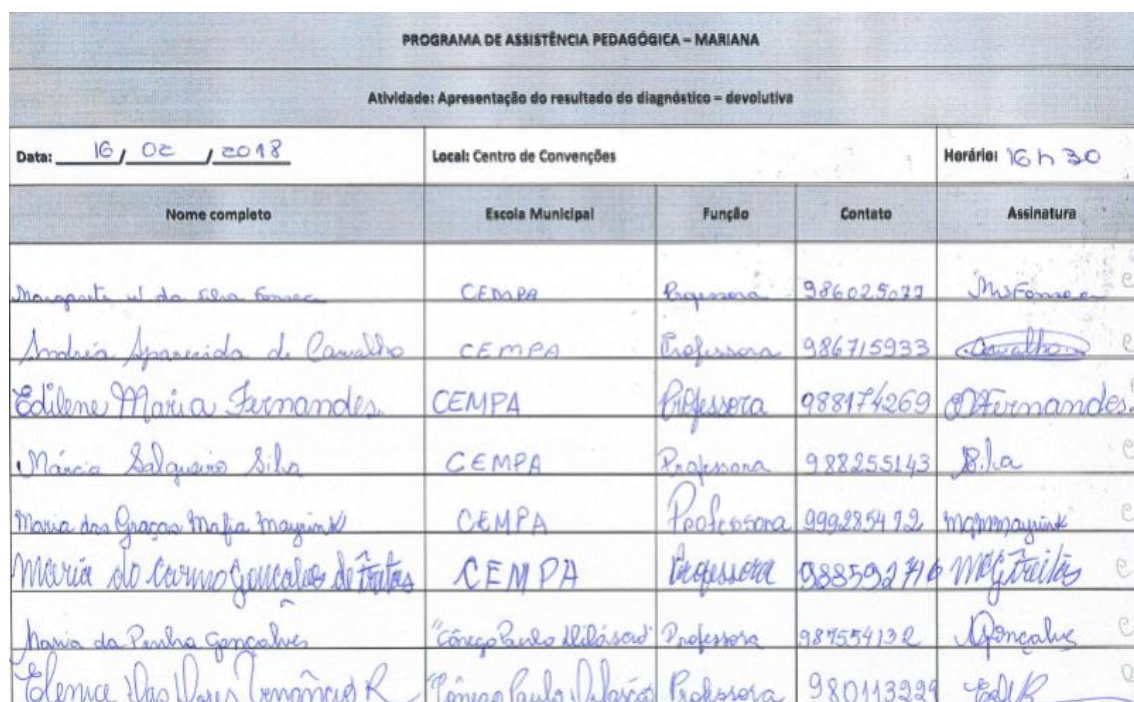 PROGRAMA DE ASSISTÊNCIA PEDAGÓGICA – MARIANA
Atividade: Apresentação do resultado do diagnóstico – devolutiva
Data: 16 / 02 / 2018 Local: Centro de Convenções Horário: 16 h 30
Nome completo Escola Municipal Função Contato Assinatura
da Silva Fonseca CEMPA Professora 986025077 MSFonseca
Andréa Aparecida de Carvalho CEMPA Professora 986715933 Carvalho
Edilene Maria Fernandes. CEMPA Professora 988174269 Fernandes.
Márcia Salgueiro Silva CEMPA Professora 988255143 Silva
Maria das Graças Mafia Mayrink CEMPA Professora 999285412 mgmmayrink
Maria do Carmo Gonçalves de Freitas CEMPA Professora 988592716 MCGFreitas
Maria da Penha Gonçalves "Cônego Paulo Dilascio" Professora 987554132 Gonçalves
Elenice das Dores R "Cônego Paulo Dilascio Professora 980113229